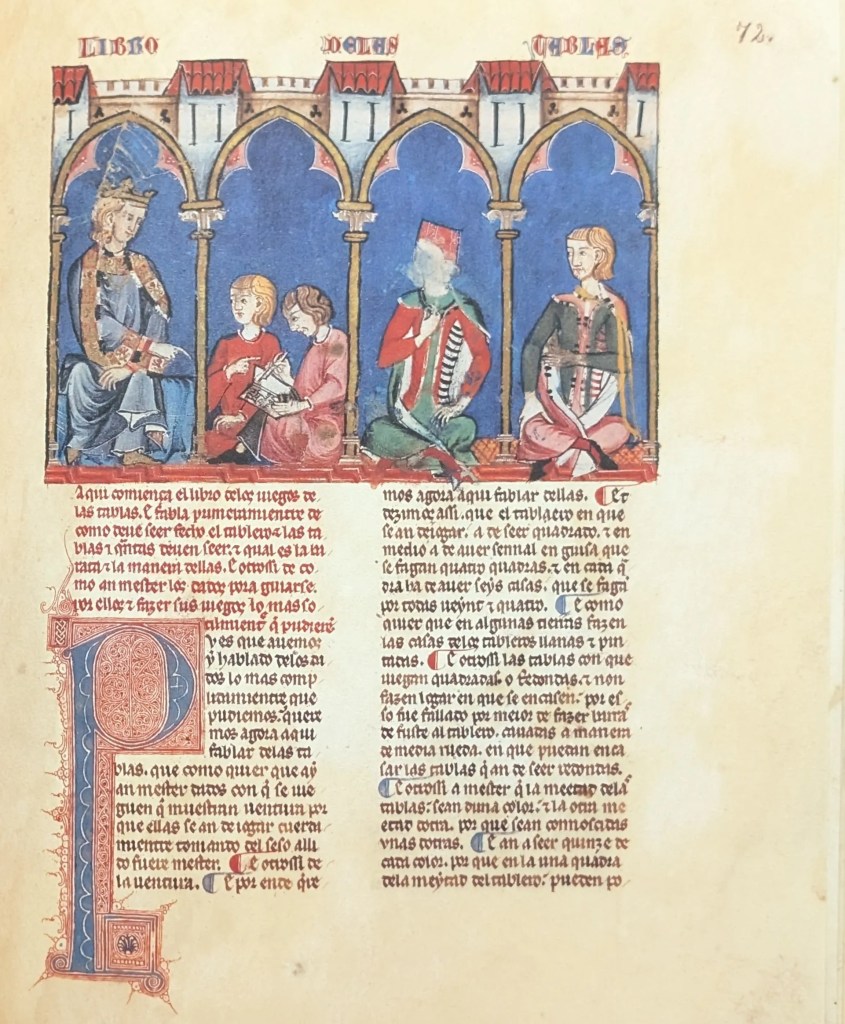 LIBRO DELAS TABLAS
72.
Aqui comiença el libro delos iuegos de
las tablas. E fabla primeramientre de
como deue seer fecho el tablero & las ta
blas & quantas deuen seer. & qual es la ba
rata & la manera dellas. E otrossi de co
mo an mester los dados pora guiarse.
por ellos & fazer sus iuegos lo mas so
tilmient q̃ pudierẽ
Pves que auemos
ỹ hablado delos da
dos lo mas comp
lidamientre que
pudiemos. quere
mos agora aqui
fablar delas ta
blas. que como quier que aỹ
an mester dados con q̃ se iue
guen q̃ muestran uentura por
que ellas se an de iogar cuerda
mientre tomando del seso alli
do fuere mester. E otrossi de
la uentura. E por ende q̃re
mos agora aqui fablar dellas. Et
dezimos assi. que el tablaero en que
se an de iogar. a de seer quadrado. & en
medio a de auer sennal en guisa que
se fagan quatro quadras. & en cada q̃
dra ha de auer seys casas. que se fagã
por todas ueynt & quatro. E como
quier que en algunas tierras fazen
las casas delos tableros llanas & pin
tadas. E otrossi las tablas con que
iuegan quadradas. o redondas. & non
fazen logar en que se encasen. por es
so fue fallado por meior de fazer barra
de fuste al tablero. cauadas a manera
de media rueda. en que puedan enca
sar las tablas q̃ an de seer redondas.
E otrossi a mester q̃ la meetad dela
tablas. sean duna color. & la otra me
etad dotra. por que sean connosçidas
unas dotras. E an a seer quinze de
cada color. por que en la una quadra
dela meytad del tablero. pueden po